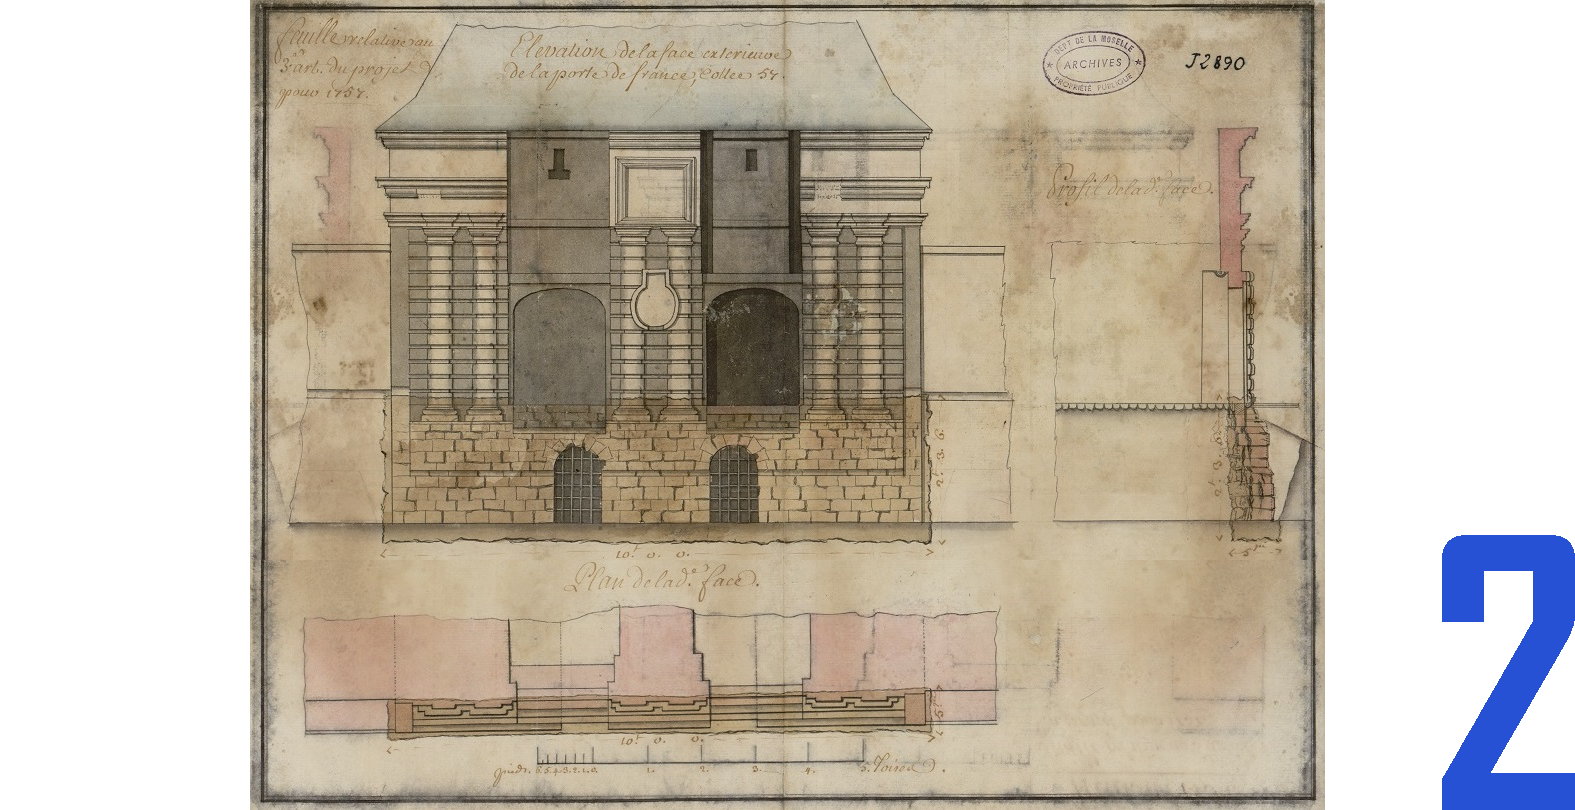 feuille relative au
3.e art. du projet
pour 1757.
Elevation de la face exterieure
de la porte de france, Cottée 57.
DEPT DE LA MOSELLE
ARCHIVES
PROPRIÉTÉ PUBLIQUE
J2890
Profil de lad.e face.
2.t 3. 6.
2.t 3. 6.
10.t 0. 0.
5.pi
Plan de lad.e face.
5.pi
10.t 0. 0.
pieds. 6.5.4.3.2.1.0. 1. 2. 3. 4. 5. Toises.
2